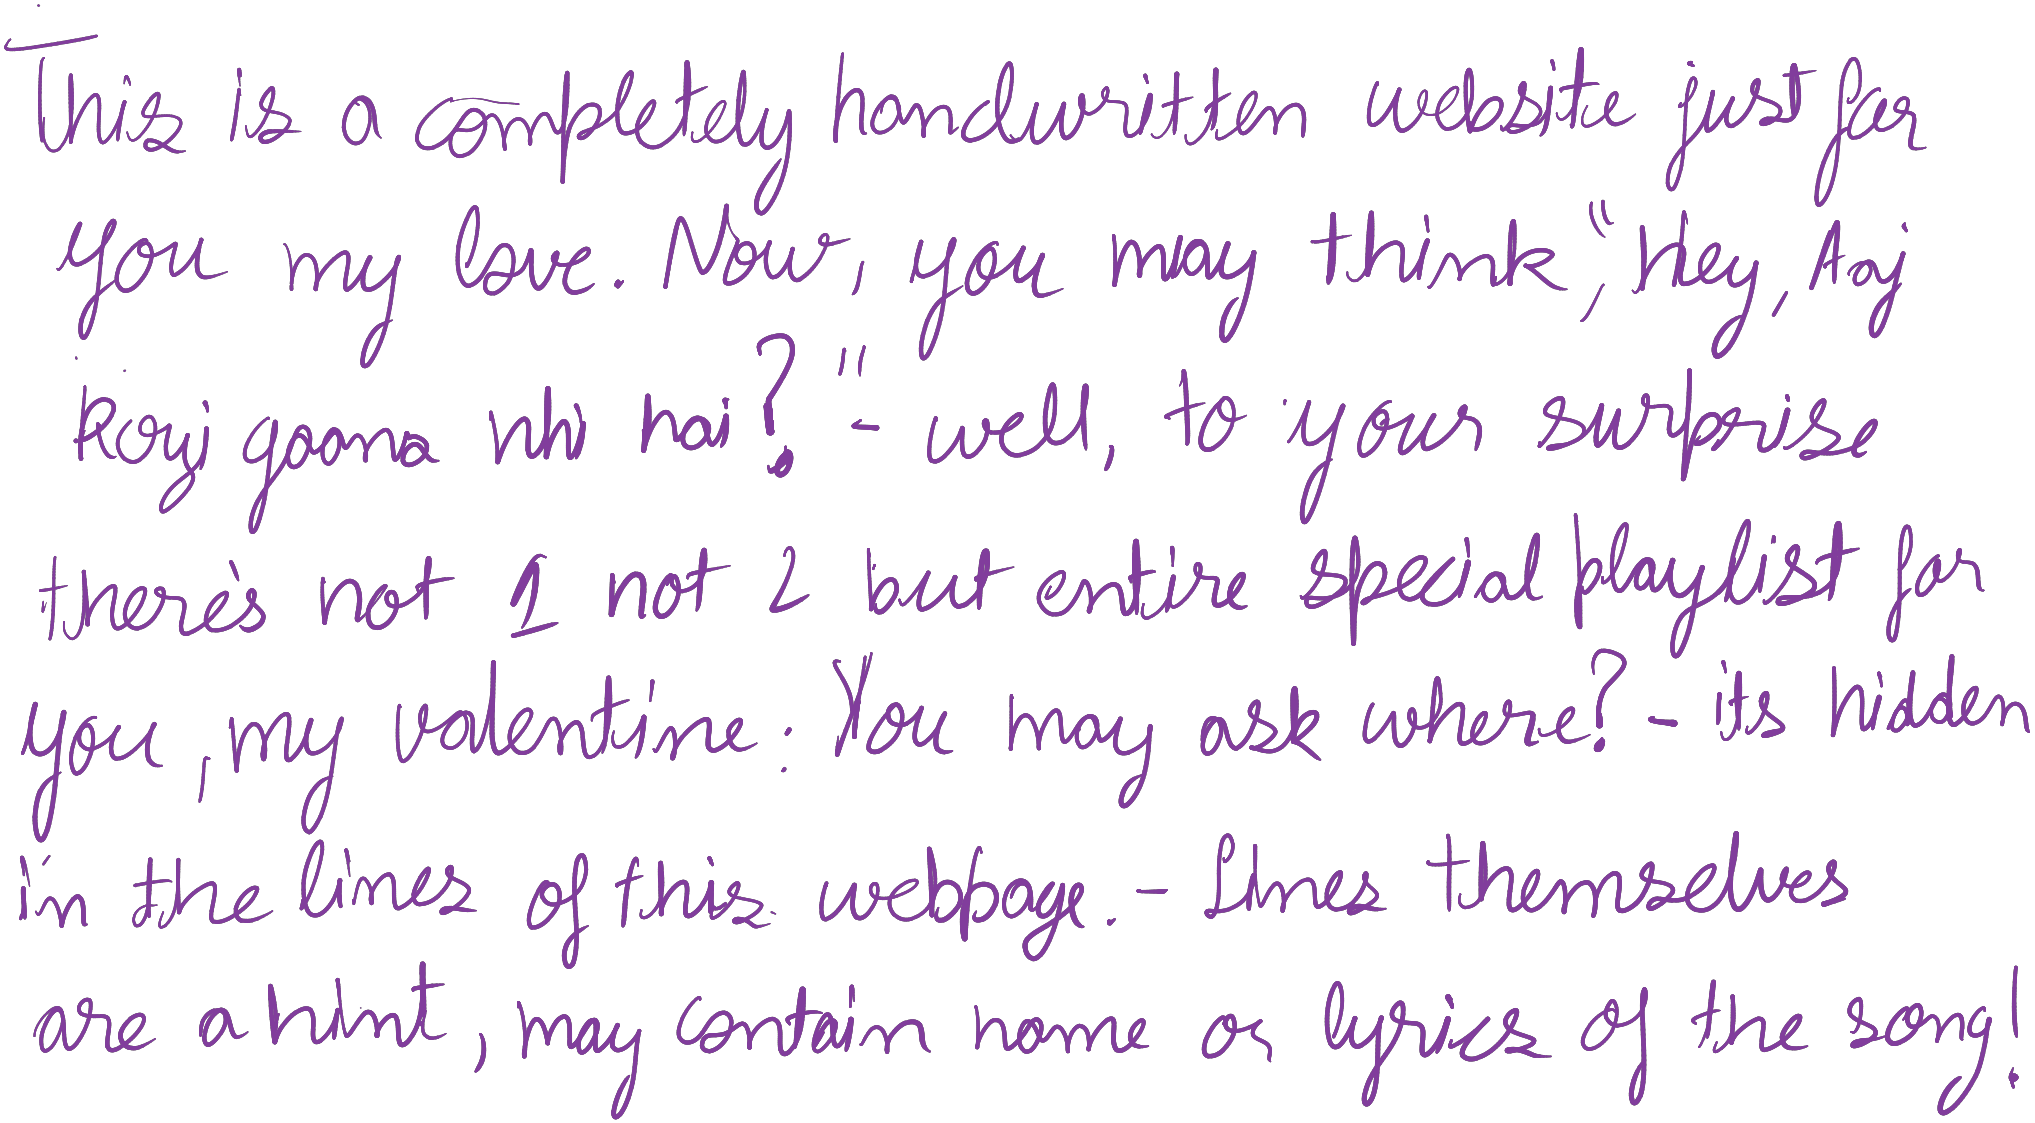 This is a completely handwritten website just for
you my love. Now, you may think, "Hey, Aaj
koyi gaana nhi hai?" - well, to your surprise
there's not 1 not 2 but entire special playlist for
you, my valentine. You may ask where? - its hidden
in the lines of this webpage. - Lines themselves
are a hint, may contain name or lyrics of the song!